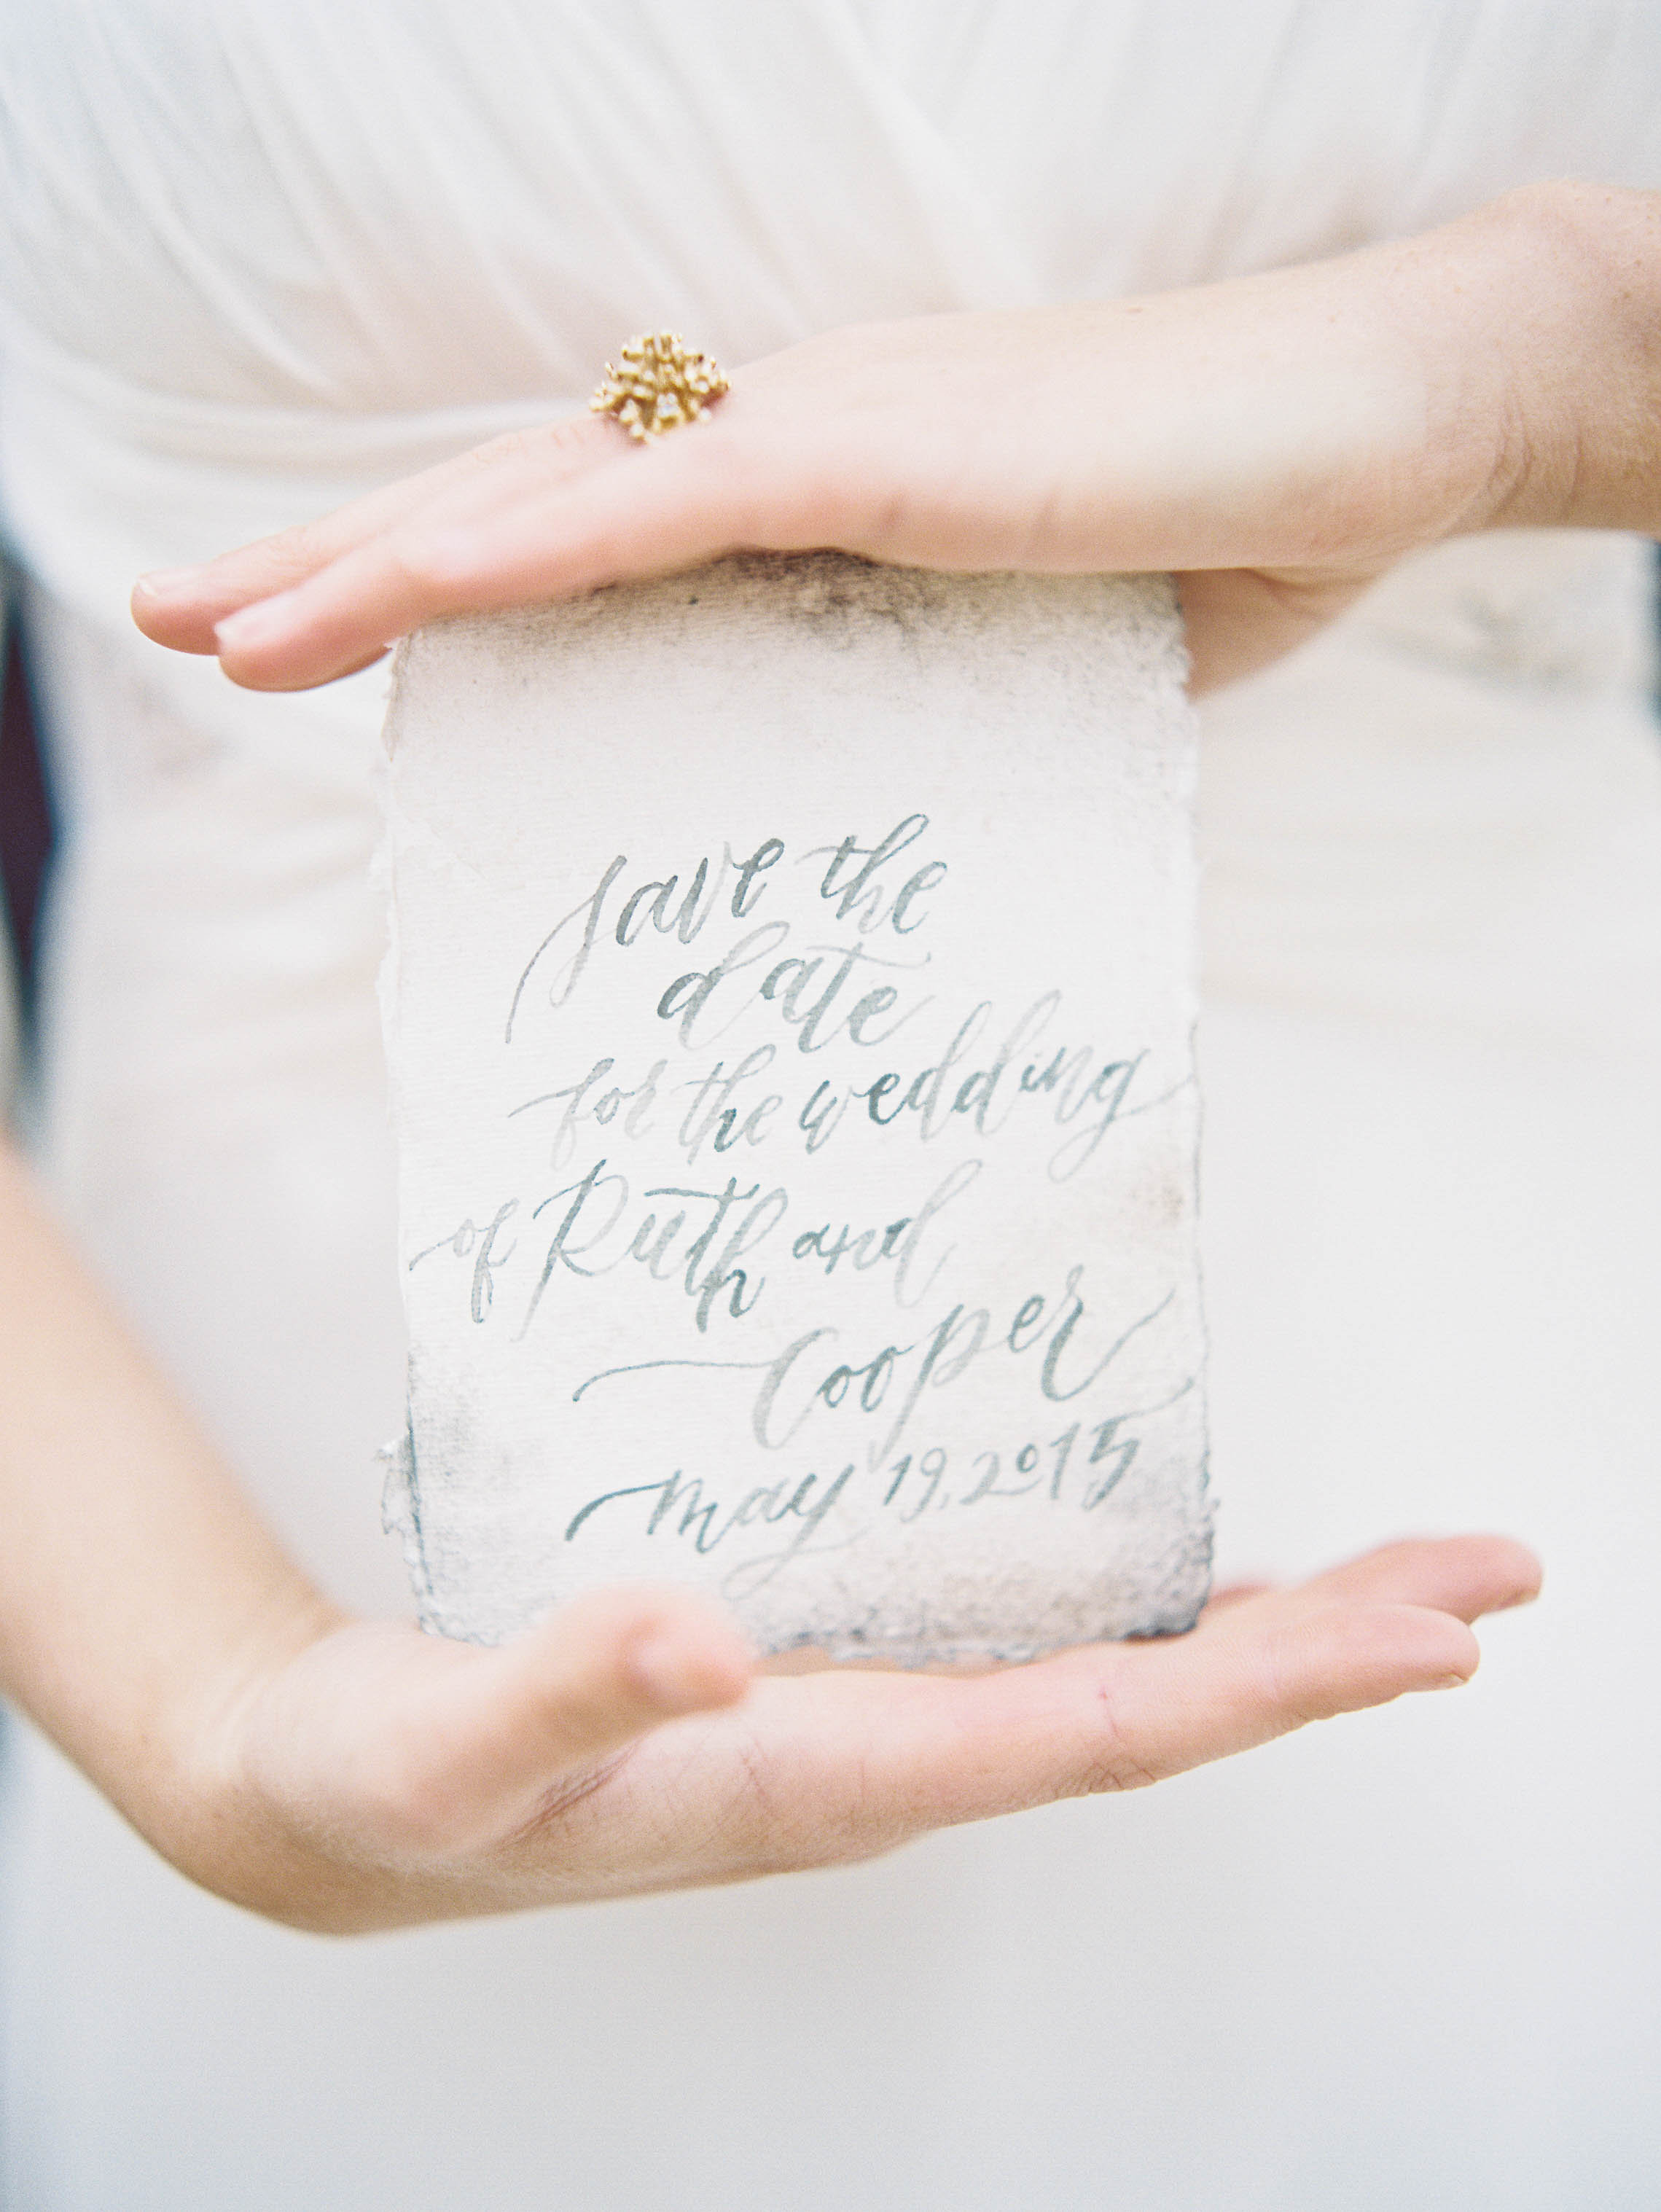 save the
date
for the wedding
of Ruth and
Cooper
may 19, 2015